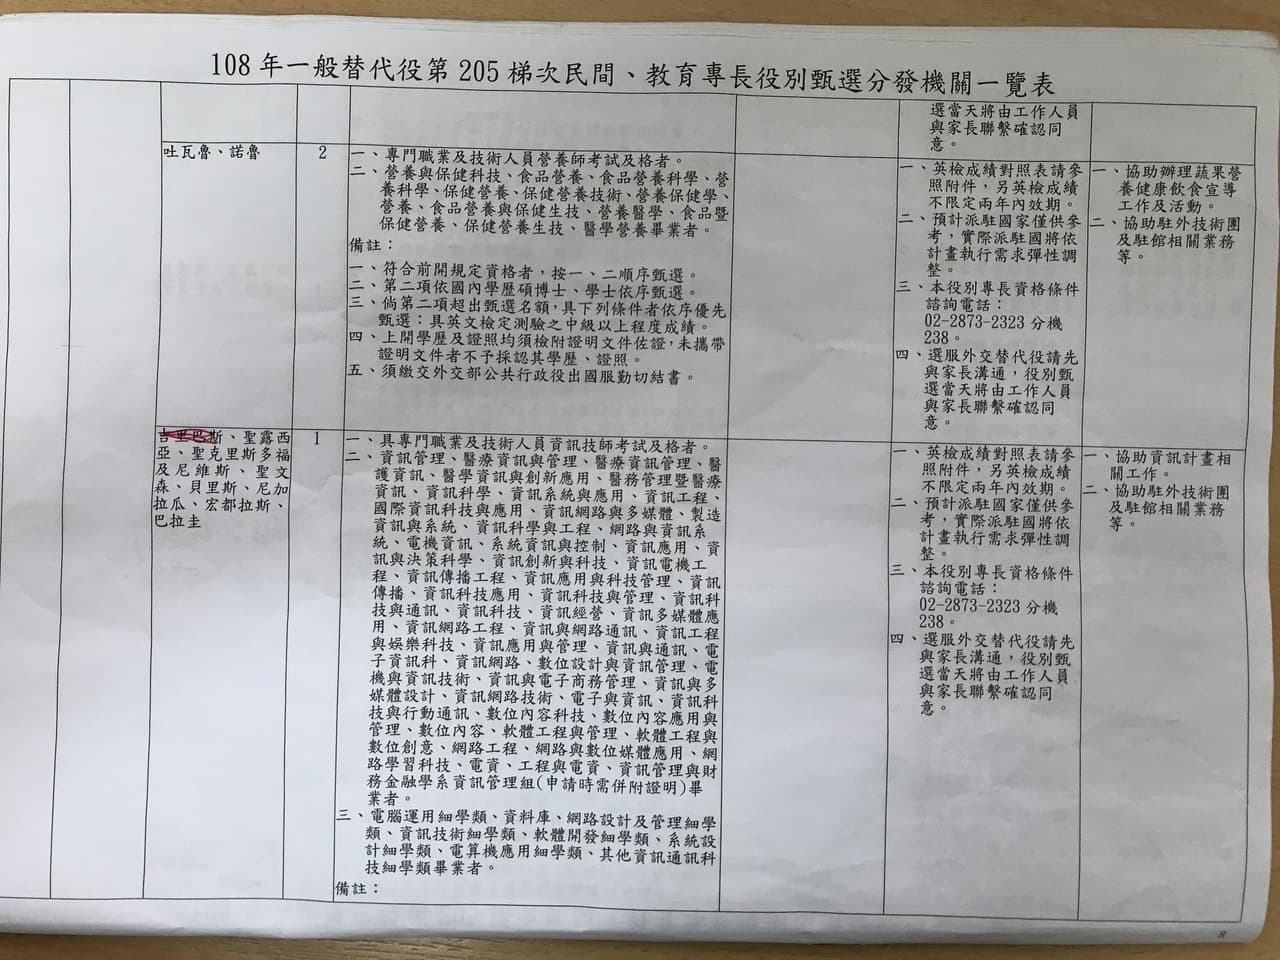 108年一般替代役第205梯次民間、教育專長役別甄選分發機關一覽表
選當天將由工作人員
與家長聯繫確認同
意。
吐瓦魯、諾魯
2
一、專門職業及技術人員營養師考試及格者。
二、營養與保健科技、食品營養、食品營養科學、營
養科學、保健營養、保健營養技術、營養保健學、
營養、食品營養與保健生技、營養醫學、食品暨
保健營養、保健營養生技、醫學營養畢業者。
備註：
一、符合前開規定資格者，按一、二順序甄選。
二、第二項依國內學歷碩博士、學士依序甄選。
三、倘第二項超出甄選名額，具下列條件者依序優先
甄選：具英文檢定測驗之中級以上程度成績。
四、上開學歷及證照均須檢附證明文件佐證，未攜帶
證明文件者不予採認其學歷、證照。
五、須繳交外交部公共行政役出國服勤切結書。
一、英檢成績對照表請參
照附件，另英檢成績
不限定兩年內效期。
二、預計派駐國家僅供參
考，實際派駐國將依
計畫執行需求彈性調
整。
三、本役別專長資格條件
諮詢電話：
02-2873-2323分機
238。
四、選服外交替代役請先
與家長溝通，役別甄
選當天將由工作人員
與家長聯繫確認同
意。
一、協助辦理蔬果營
養健康飲食宣導
工作及活動。
二、協助駐外技術團
及駐館相關業務
等。
吉里巴斯、聖露西
亞、聖克里斯多福
及尼維斯、聖文
森、貝里斯、尼加
拉瓜、宏都拉斯、
巴拉圭
1
一、具專門職業及技術人員資訊技師考試及格者。
二、資訊管理、醫療資訊與管理、醫療資訊管理、醫
護資訊、醫學資訊與創新應用、醫務管理暨醫療
資訊、資訊科學、資訊系統與應用、資訊工程、
國際資訊科技與應用、資訊網路與多媒體、製造
資訊與系統、資訊科學與工程、網路與資訊系
統、電機資訊、系統資訊與控制、資訊應用、資
訊與決策科學、資訊創新與科技、資訊電機工
程、資訊傳播工程、資訊應用與科技管理、資訊
傳播、資訊科技應用、資訊科技與管理、資訊科
技與通訊、資訊科技、資訊經營、資訊多媒體應
用、資訊網路工程、資訊與網路通訊、資訊工程
與娛樂科技、資訊應用與管理、資訊與通訊、電
子資訊科、資訊網路、數位設計與資訊管理、電
機與資訊技術、資訊與電子商務管理、資訊與多
媒體設計、資訊網路技術、電子與資訊、資訊科
技與行動通訊、數位內容科技、數位內容應用與
管理、數位內容、軟體工程與管理、軟體工程與
數位創意、網路工程、網路與數位媒體應用、網
路學習科技、電資、工程與電資、資訊管理與財
務金融學系資訊管理組(申請時需併附證明)畢
業者。
三、電腦運用細學類、資料庫、網路設計及管理細學
類、資訊技術細學類、軟體開發細學類、系統設
計細學類、電算機應用細學類、其他資訊通訊科
技細學類畢業者。
備註：
一、英檢成績對照表請參
照附件，另英檢成績
不限定兩年內效期。
二、預計派駐國家僅供參
考，實際派駐國將依
計畫執行需求彈性調
整。
三、本役別專長資格條件
諮詢電話：
02-2873-2323分機
238。
四、選服外交替代役請先
與家長溝通，役別甄
選當天將由工作人員
與家長聯繫確認同
意。
一、協助資訊計畫相
關工作。
二、協助駐外技術團
及駐館相關業務
等。
8